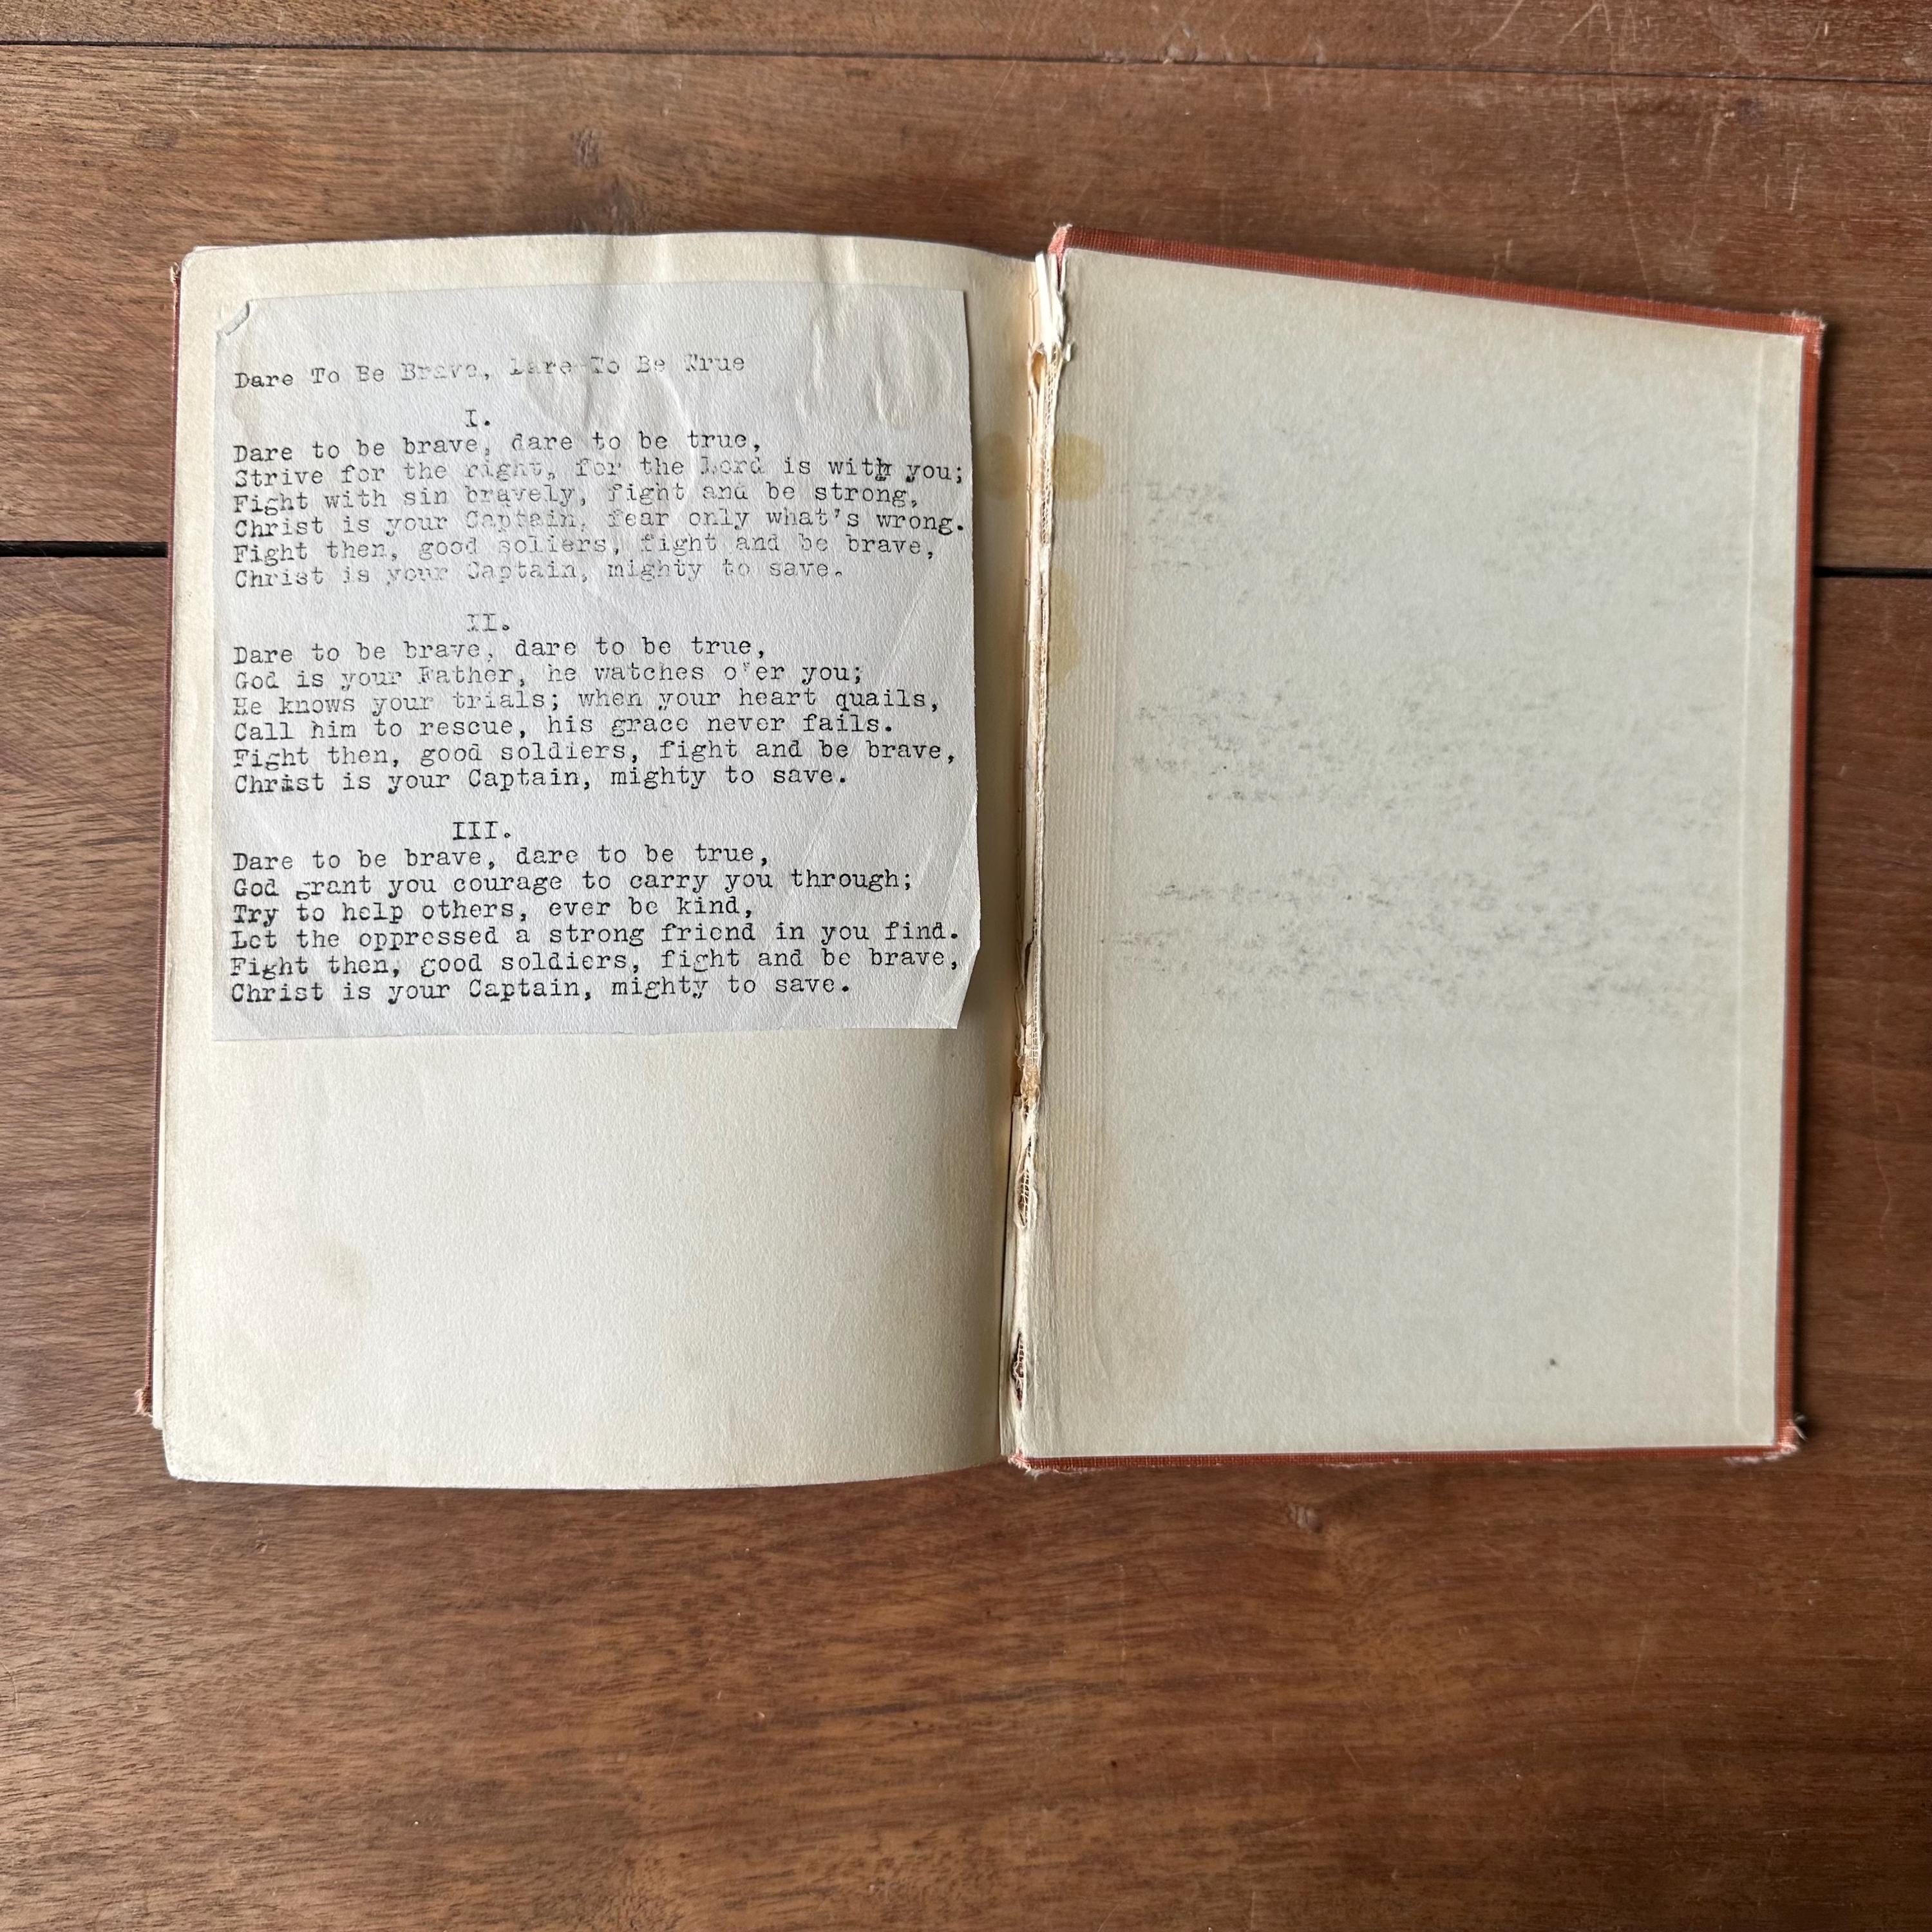 Dare To Be Brave, Dare To Be True
I.
Dare to be brave, dare to be true,
Strive for the right, for the Lord is with you;
Fight with sin bravely, fight and be strong,
Christ is your Captain, fear only what's wrong.
Fight then, good soliers, fight and be brave,
Christ is your Captain, mighty to save.
II.
Dare to be brave, dare to be true,
God is your Father, he watches o'er you;
He knows your trials; when your heart quails,
Call him to rescue, his grace never fails.
Fight then, good soldiers, fight and be brave,
Christ is your Captain, mighty to save.
III.
Dare to be brave, dare to be true,
God grant you courage to carry you through;
Try to help others, ever be kind,
Let the oppressed a strong friend in you find.
Fight then, good soldiers, fight and be brave,
Christ is your Captain, mighty to save.